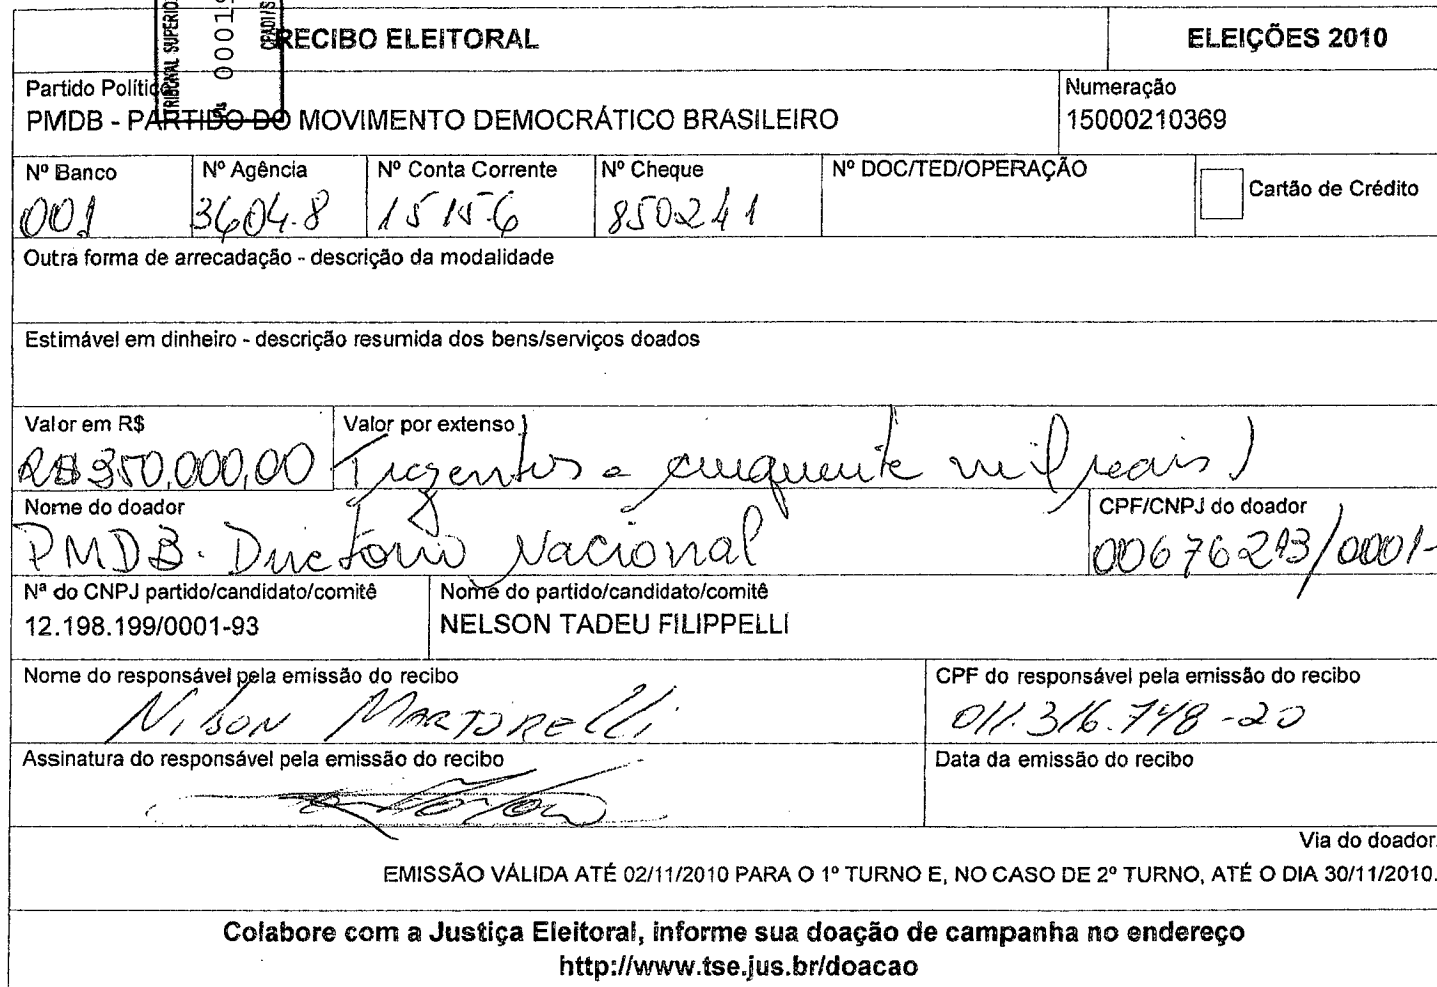 TRIBUNAL SUPERIO
RECIBO ELEITORAL
ELEIÇÕES 2010
Partido Político
PMDB - PARTIDO DO MOVIMENTO DEMOCRÁTICO BRASILEIRO
Numeração
15000210369
Nº Banco
001
Nº Agência
3604-8
Nº Conta Corrente
15156
Nº Cheque
850241
Nº DOC/TED/OPERAÇÃO
Cartão de Crédito
Outra forma de arrecadação - descrição da modalidade
Estimável em dinheiro - descrição resumida dos bens/serviços doados
Valor em R$
R$ 350,000,00
Valor por extenso
Trezentos e cinquenta mil reais)
Nome do doador
PMDB. Diretorio Nacional
CPF/CNPJ do doador
00676213/0001-
Nª do CNPJ partido/candidato/comitê
12.198.199/0001-93
Nome do partido/candidato/comitê
NELSON TADEU FILIPPELLI
Nome do responsável pela emissão do recibo
Nilson Martorelli
CPF do responsável pela emissão do recibo
011.316.748-20
Assinatura do responsável pela emissão do recibo
Data da emissão do recibo
Via do doador.
EMISSÃO VÁLIDA ATÉ 02/11/2010 PARA O 1º TURNO E, NO CASO DE 2º TURNO, ATÉ O DIA 30/11/2010.
Colabore com a Justiça Eleitoral, informe sua doação de campanha no endereço
http://www.tse.jus.br/doacao